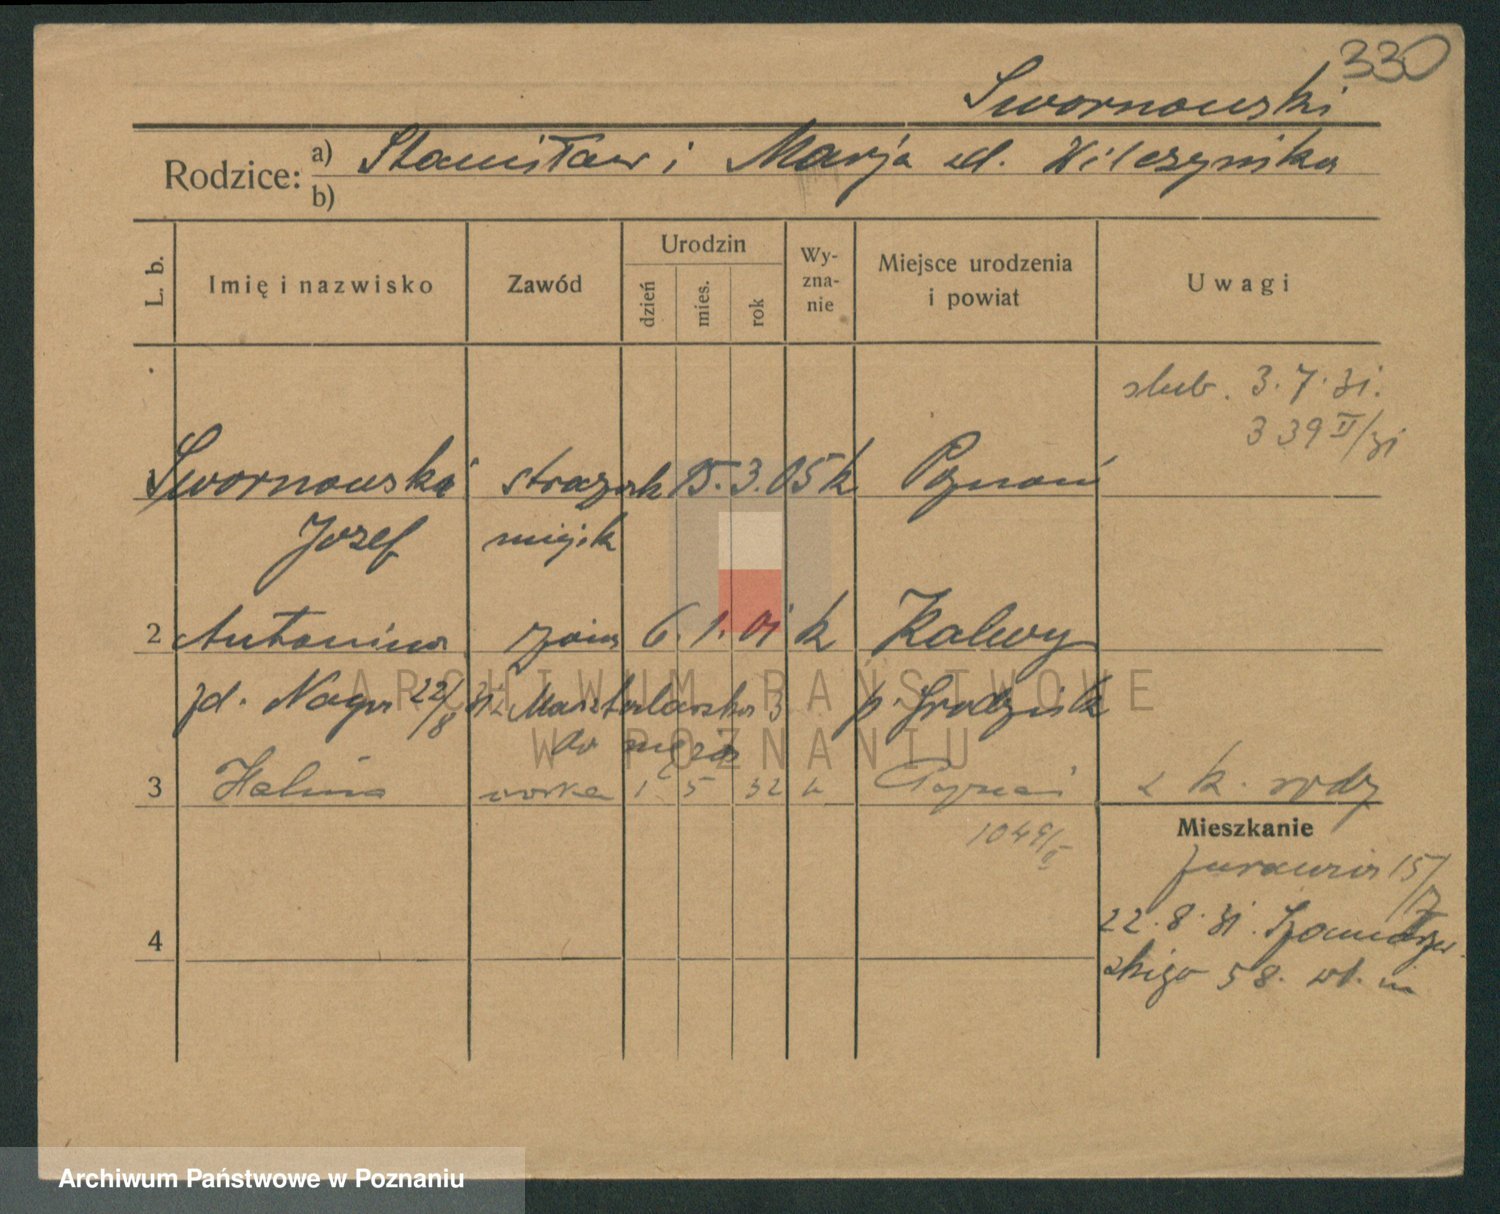 330
Swornowski
Rodzice: a) Stanisław i Marja zd. Wilczyńska
b)
L. b.
Imię i nazwisko
Zawód
Urodzin
dzień
mies.
rok
Wy-
zna-
nie
Miejsce urodzenia
i powiat
Uwagi
slub. 3.7.31.
339 II/31
Swornowski strażak 15. 3. 05 k Poznań
Józef miejsk
2 Antonina żona 6. 1. 01 k Kalwy
zd. Noga 22/8 31 z Masztalarska 3 p. Grodzisk
do męża
3 Halina córka 1 5 32 k Poznań z k. rodz
1049/II
Mieszkanie
Żurawia 15/7
22.8.31. Szamarzew-
skigo 58. wł. m
4
ARCHIWUM PAŃSTWOWE
W POZNANIU
Archiwum Państwowe w Poznaniu